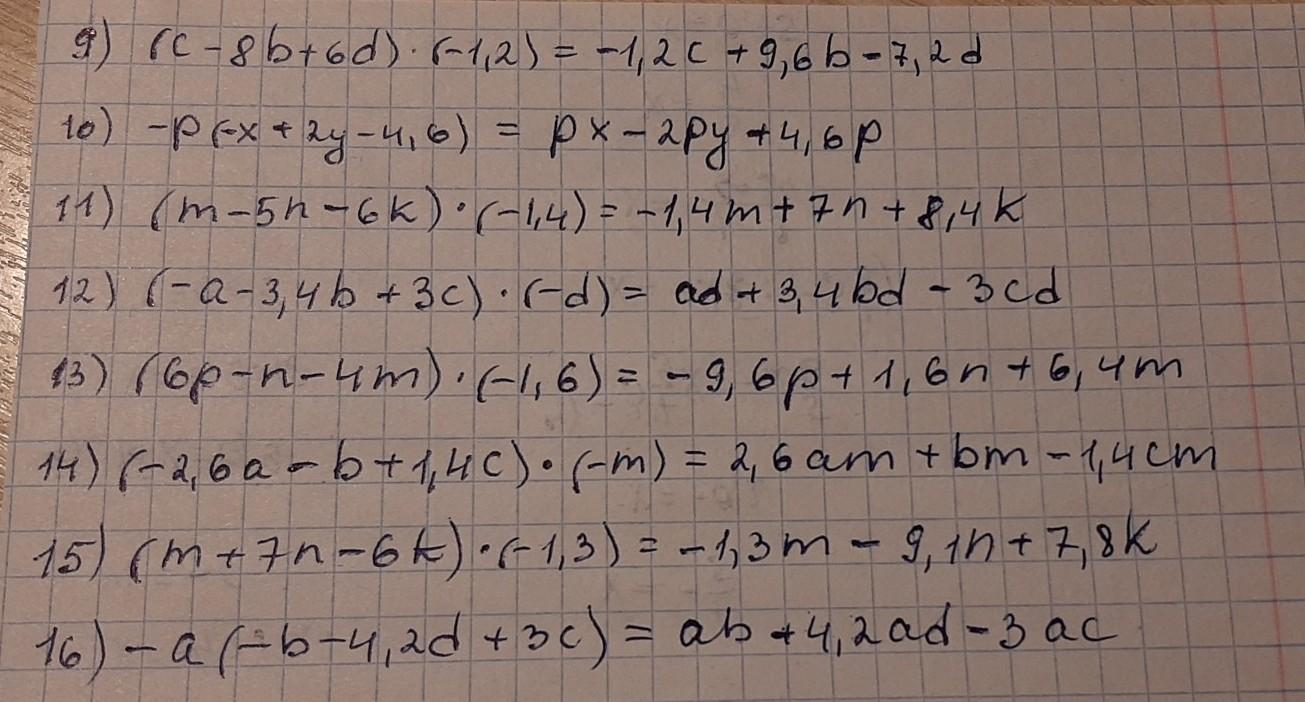 9) (c - 8b + 6d) · (-1,2) = -1,2c + 9,6b - 7,2d
10) -p(-x + 2y - 4,6) = px - 2py + 4,6p
11) (m - 5n - 6k) · (-1,4) = -1,4m + 7n + 8,4k
12) (-a - 3,4b + 3c) · (-d) = ad + 3,4bd - 3cd
13) (6p - n - 4m) · (-1,6) = -9,6p + 1,6n + 6,4m
14) (-2,6a - b + 1,4c) · (-m) = 2,6am + bm - 1,4cm
15) (m + 7n - 6k) · (-1,3) = -1,3m - 9,1n + 7,8k
16) -a(-b - 4,2d + 3c) = ab + 4,2ad - 3ac